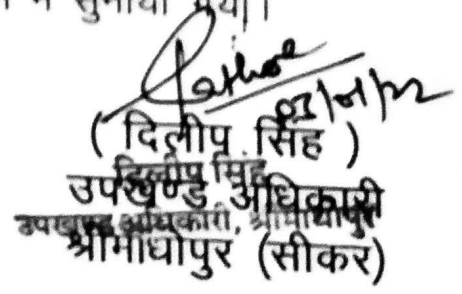 में सुनाया गया।
( दिलीप सिंह )
दिलीप सिंह
उपखण्ड अधिकारी
उपखण्ड अधिकारी, श्रीमाधोपुर
श्रीमाधोपुर (सीकर)